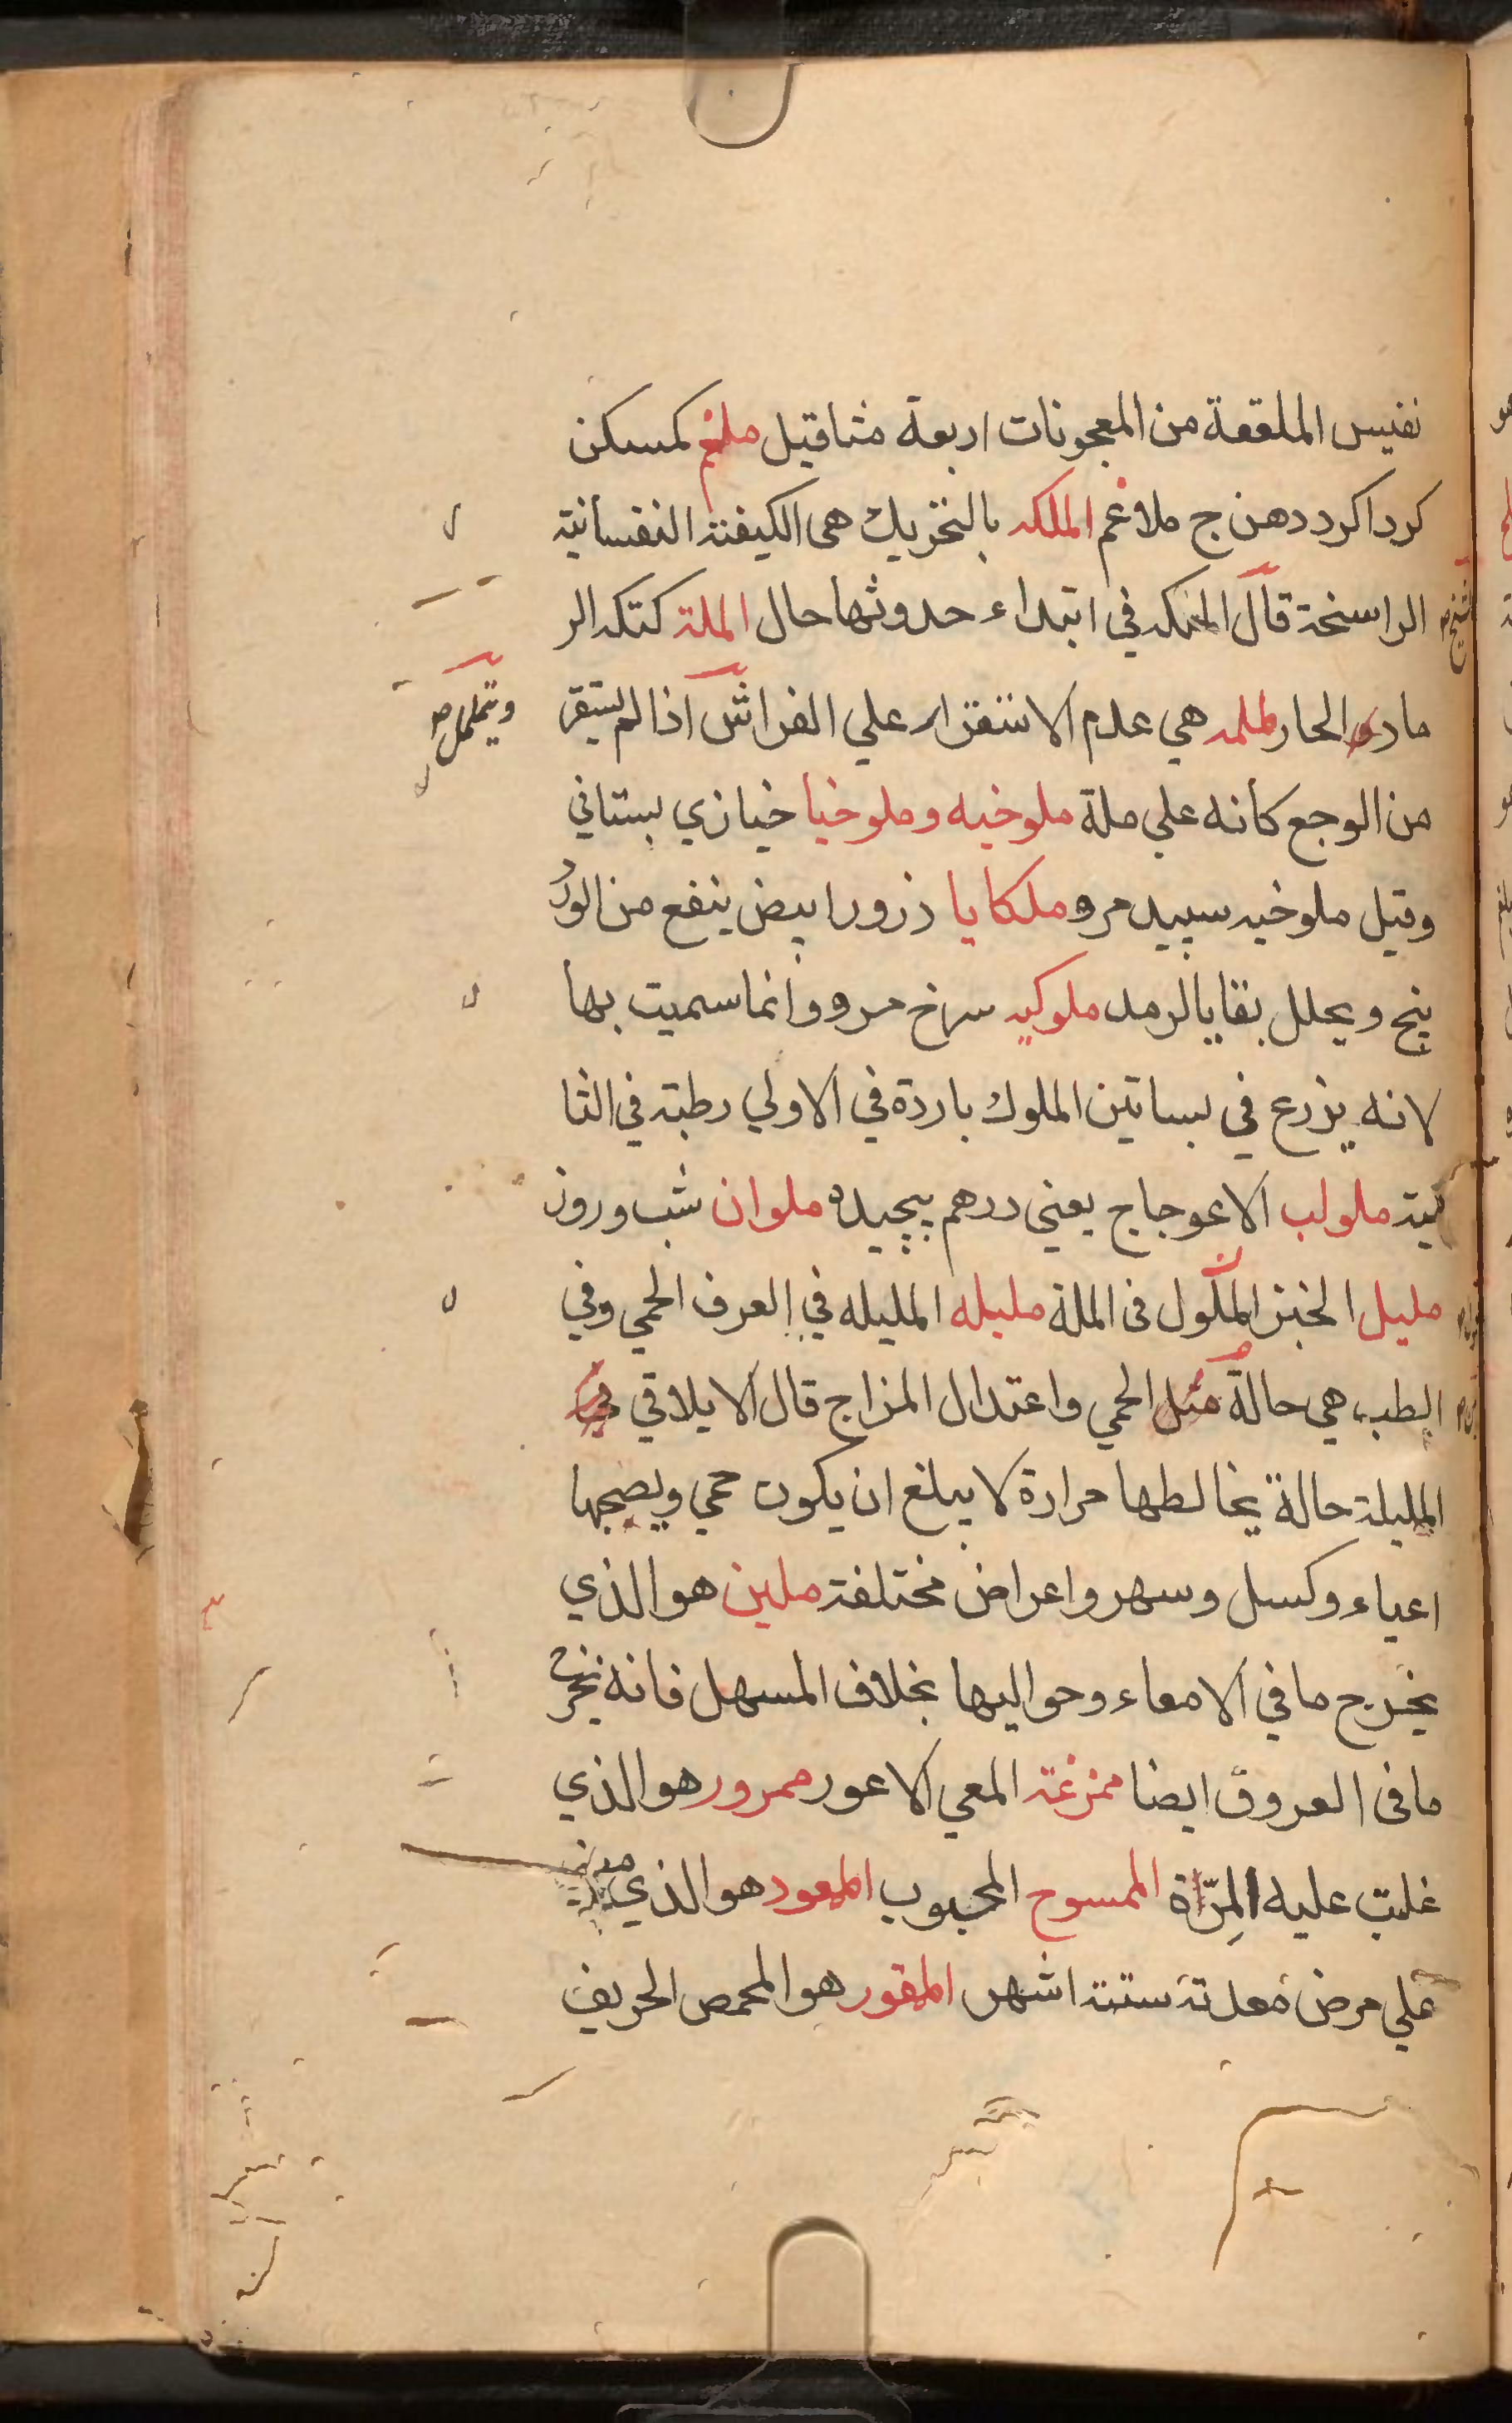 نفيس الملقعة من المعجونات اربعة مثاقيل ملغم كمسكن
كرداكرد دهن ج ملاغم الملكه بالتحريك هى الكيفية النفسانية
الراسخة قال في ابتداء حدوثها حال الملة كتكه الر
ماد الحار ململه هي عدم الاستقرار علي الفراش اذا لم يستقر
ويتململ صح
من الوجع كانه علي ملة ملوخيه وملوخيا خبازي بستاني
وقيل ملوخيه سپيد مرو ملكايا ذرور ابيض ينفع من الورد
ينج ويحلل بقايا الرمد ملوكيه سرخ مرو وانما سميت بها
لانه يزرع في بساتين الملوك باردة في الاولي رطبة في الثا
نية ملولب الاعوجاج يعني درهم پيچيده ملوان شب وروز
مليل الخبز المملول فى الملة مليله المليله في العرف الحمي وفي
الطب هي حالة الحمي واعتدال المزاج قال الايلاقي
المليلة حالة يخالطها حرارة لا يبلغ ان يكون حمي ويصحبها
اعياء وكسل وسهر واعراض مختلفة ملين هو الذي
يخرج ما في الامعاء وحواليها بخلاف المسهل فانه يخرج
ما فى العروق ايضا ممرغة المعي الاعور ممرور هو الذي
غلبت عليه المرة الممسوح المجبوب الممعود هو الذي
علي مرض معدته ستة اشهر الممقور هو المحمص الحريف